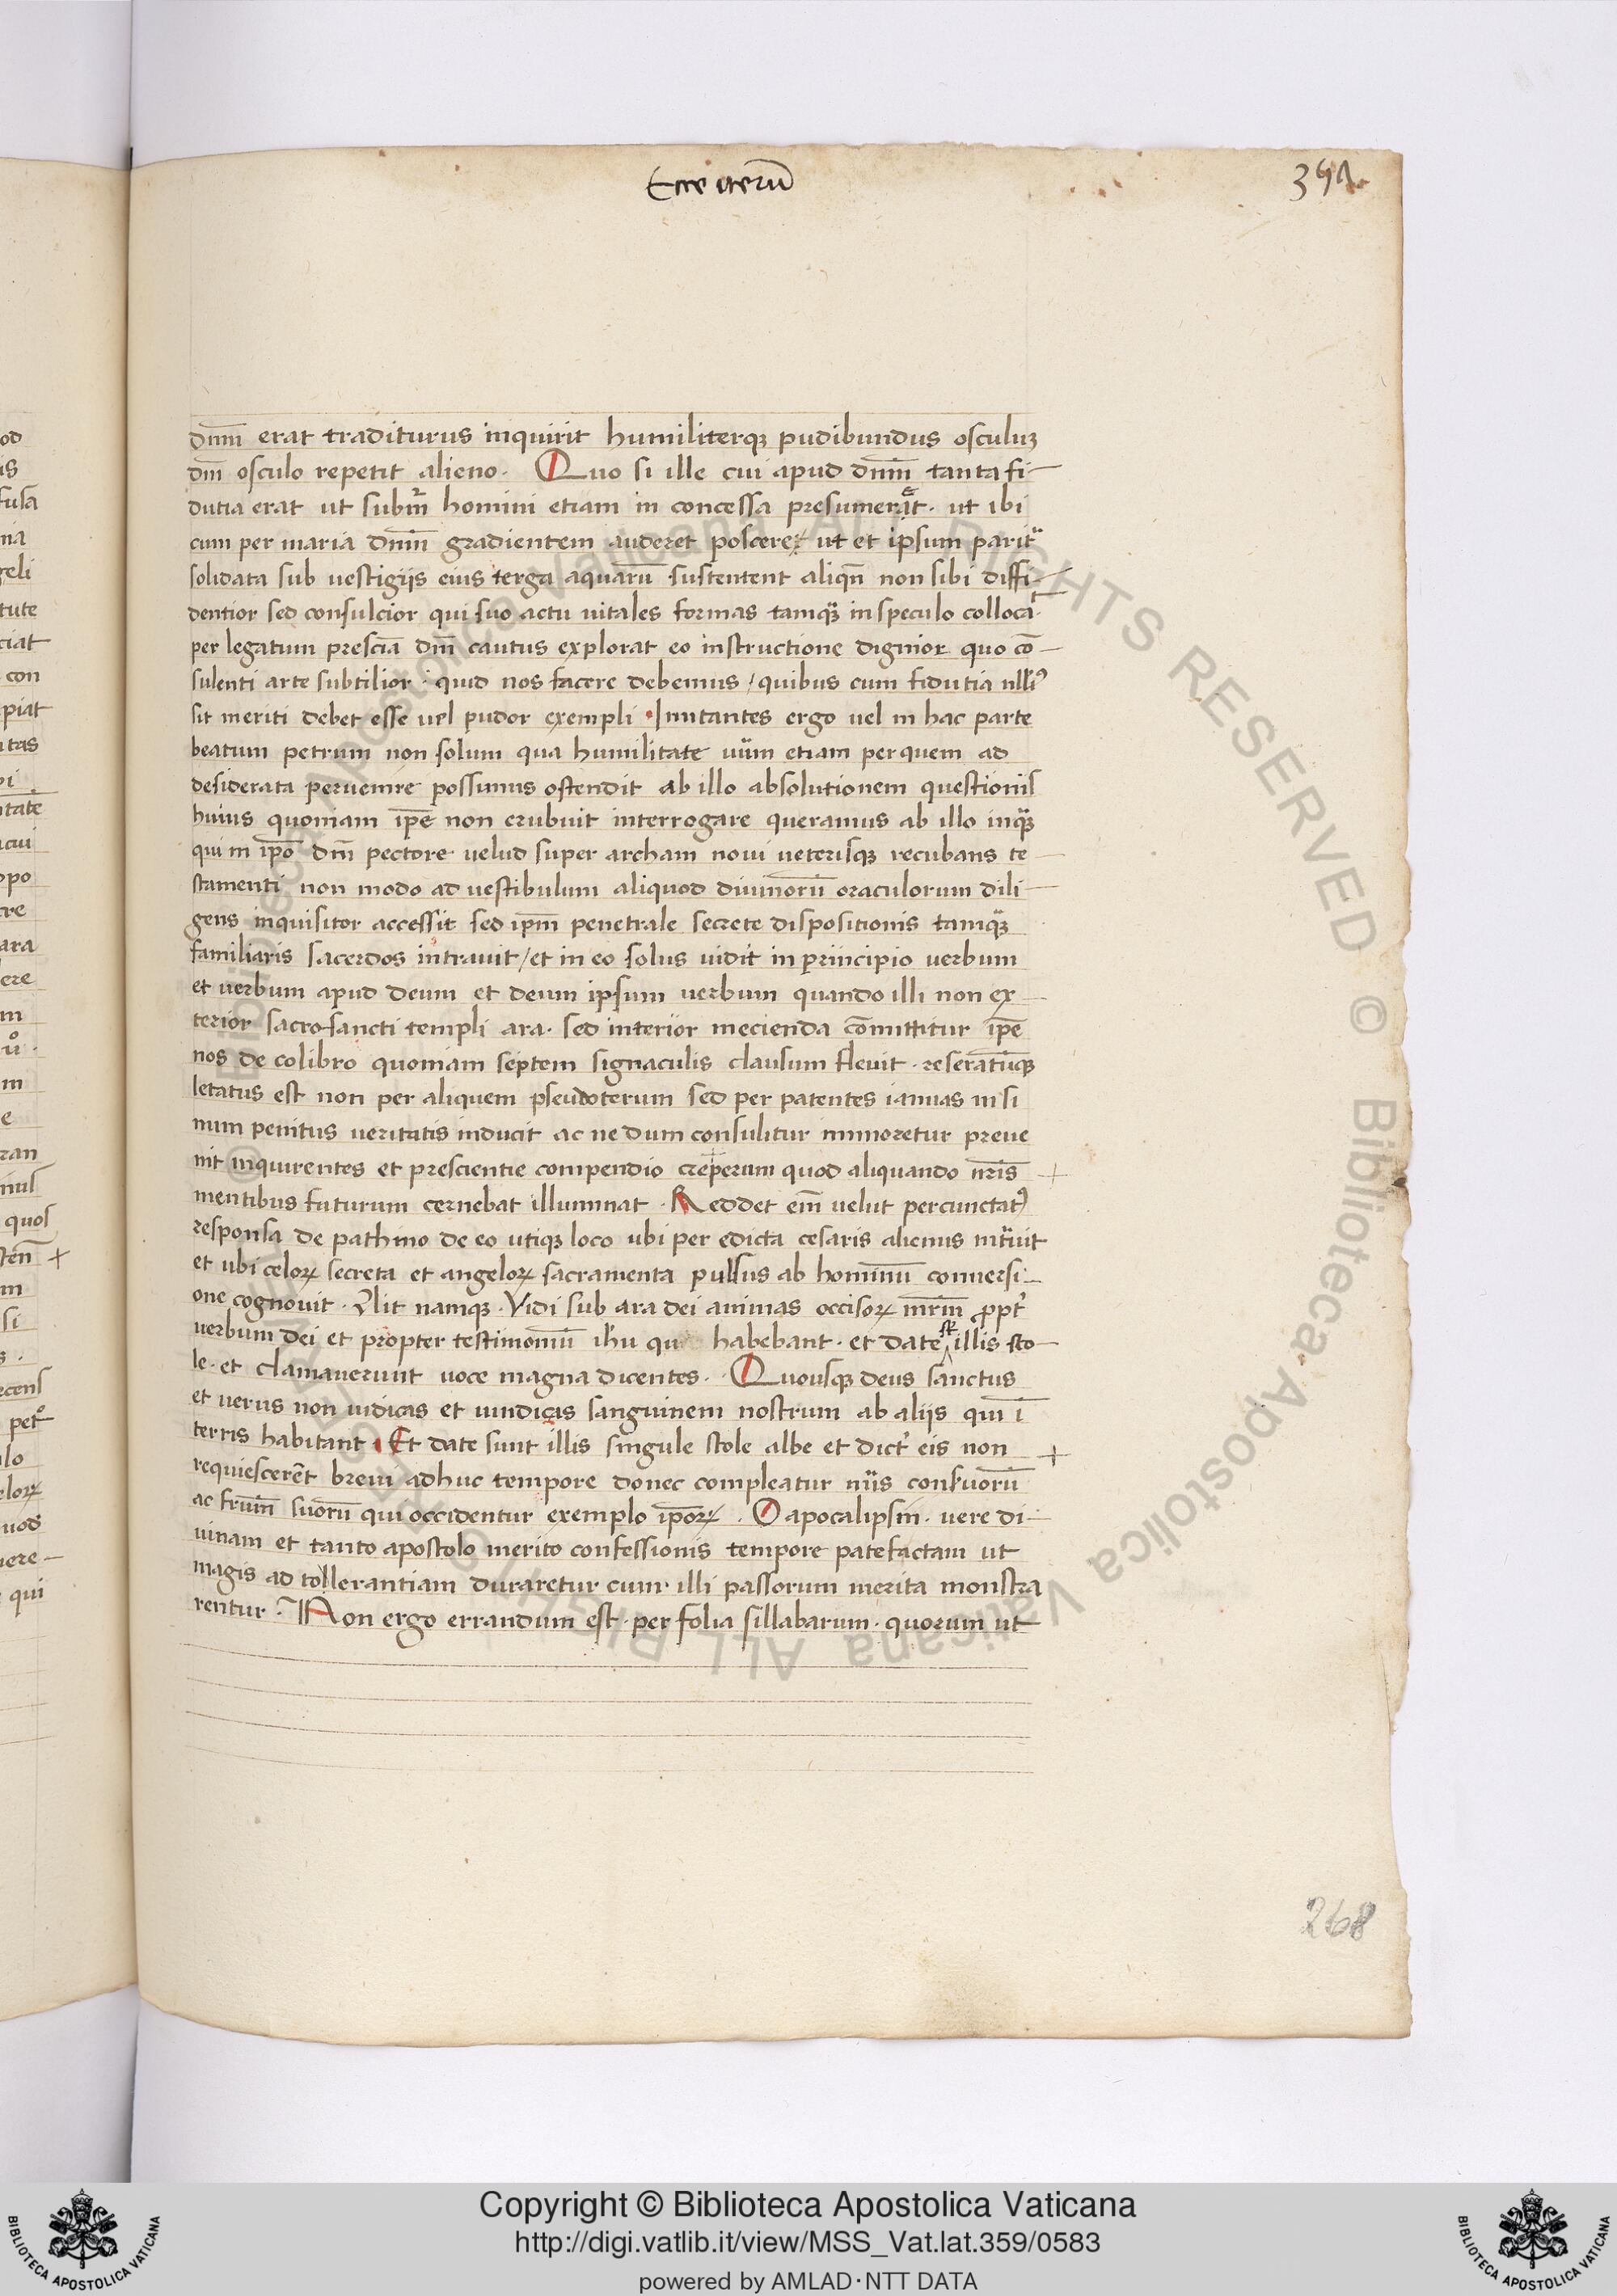 Ecce iterū
dnm̄ erat traditurus inquirit humiliterqꝫ pudibundus osculuꝫ
dm̄ osculo repetit alieno. Quo si ille cui apud dnm̄ tanta fi-
dutia erat ut homini etiam in concessa ut ibi
cum per maria dnm̄ gradientem auderet poscere ut et ipsum
solidata sub uestigijs eius terga aquarū sustentent aliqn̄ non sibi diffi-
dentior sed consulcior qui suo actu uitales formas tamqꝫ in speculo
per legatum presciā dm̄ cautus explorat eo instructione dignior quo cō-
sulenti arte subtilior. quid nos facere debemus / quibus cum fidutia
sit meriti debet esse uel pudor exempli. Imitantes ergo uel in hac parte
beatum petrum non solum qua humilitate etiam per quem ad
desiderata peruenire possimus ostendit ab illo absolutionem questionis
huius quoniam ip̄e non erubuit interrogare queramus ab illo inqꝫ
qui in ip̄o dm̄ pectore uelud super archam noui ueterisqꝫ recubans te-
stamenti non modo ad uestibulum aliquod diuinorū oraculorum dili-
gens inquisitor accessit sed ip̄m penetrale secrete dispositionis tamqꝫ
familiaris sacerdos intrauit / et in eo solus uidit in principio uerbum
et uerbum apud deum et deum ipsum uerbum quando illi non ex-
terior sacro sancti templi ara. sed interior mecienda cōmittitur ip̄e
nos de colibro quoniam septem signaculis clausum fleuit. reseratūqꝫ
letatus est non per aliquem pseudoterum sed per patentes ianuas in si
num penitus ueritatis inducit ac ne dum consulitur inmoretur preue
nit inquirentes et prescientie compendio creperum quod aliquando nr̄is
mentibus futurum cernebat illuminat. Reddet em̄ uelut
responsa de pathmo de eo utiqꝫ loco ubi per edicta cesaris alienus
et ubi celoꝝ secreta et angeloꝝ sacramenta pulsus ab hominū conuersi-
one cognouit. namqꝫ. Vidi sub ara dei animas occisoꝝ
uerbum dei et propter testimoniū ih̄u habebant. et date illis sto-
le. et clamauerunt uoce magna dicentes. Quousqꝫ deus sanctus
et uerus non iudicas et uindicas sanguinem nostrum ab alijs qui ī
terris habitant. Et date sunt illis singule stole albe et eis non
requiescerēt breui adhuc tempore donec compleatur
ac suorū qui occidentur exemplo ip̄oꝝ. O apocalipsin. uere di-
uinam et tanto apostolo merito confessionis tempore patefactam ut
magis ad tollerantiam duraretur cum illi passorum merita monstra
rentur. Non ergo errandum est. per folia sillabarum. quorum ut
268
Copyright © Biblioteca Apostolica Vaticana
http://digi.vatlib.it/view/MSS_Vat.lat.359/0583
powered by AMLAD·NTT DATA